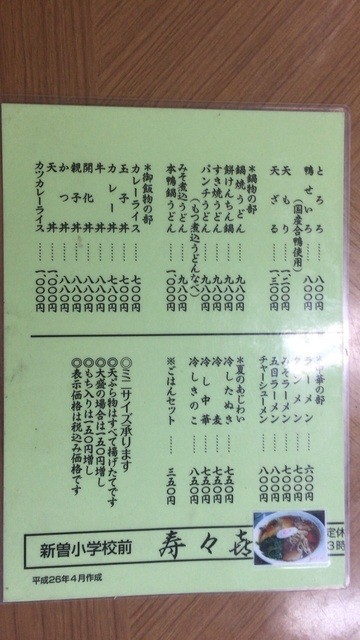 とろろ……八〇〇円
鴨せいろ……
(国産合鴨使用)
天もり……一、二〇〇円
天ざる……一、三〇〇円
*鍋物の部
鍋焼うどん……九八〇円
餅けんちん鍋……九八〇円
すき焼うどん……九八〇円
パンチうどん……九八〇円
みそ煮込うどん……九八〇円
(もつ煮込うどんなべ)
本鴨鍋うどん……一、〇〇〇円
*御飯物の部
カレーライス……七〇〇円
玉子丼……七〇〇円
カレー丼……
牛丼……八八〇円
開化丼……八八〇円
親子丼……八八〇円
かつ丼……八八〇円
天丼……一、〇〇〇円
カツカレーライス……一、〇〇〇円
*中華の部
ラーメン……六〇〇円
タンメン……七〇〇円
みそラーメン……七〇〇円
五目ラーメン……八〇〇円
チャーシューメン……八〇〇円
*夏のあじわい
冷したぬき……七五〇円
冷し麦……七五〇円
冷し中華……七五〇円
冷しきのこ……八五〇円
※ごはんセット……三五〇円
◎ミニサイズ承ります
◎天ぷら物はすべて揚げたてです
◎大盛の場合は一五〇円増し
◎もち入りは一五〇円増し
◎表示価格は税込み価格です
新曽小学校前
寿々㐂
定休
3時
平成26年4月作成